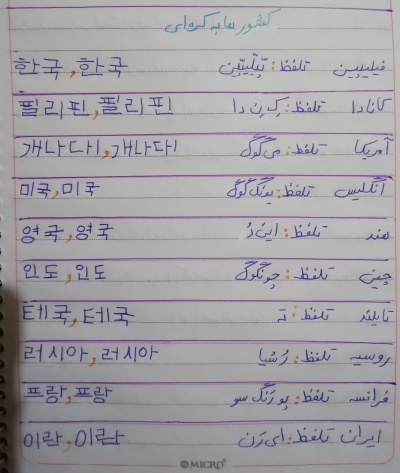 کشورها به کره‌ای
فیلیپین تلفظ: پیلیپین 한국, 한국
کانادا تلفظ: کِ نِ دا 필리핀, 필리핀
آمریکا تلفظ: می گوگ 개나다, 개나다
انگلیس تلفظ: یونگ گوگ 미국, 미국
هند تلفظ: این دُ 영국, 영국
چین تلفظ: جونگوگ 인도, 인도
تایلند تلفظ: تِ 테국, 테국
روسیه تلفظ: رُشیا 러시아, 러시아
فرانسه تلفظ: پورَنگ سو 프랑, 프랑
ایران تلفظ: ای رَن 이란, 이란
MICRO